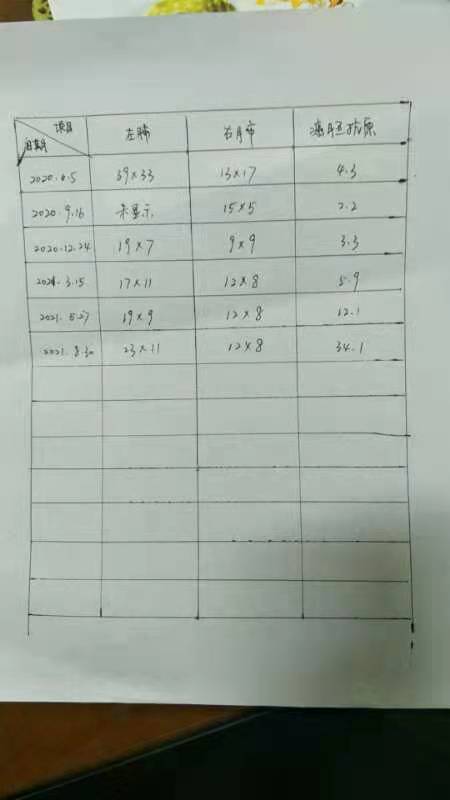 项目
日期 左肺 右肺 癌胚抗原
2020.6.5 39×33 13×17 4.3
2020.9.16 未显示 15×5 2.2
2020.12.24 19×7 9×9 3.3
2021.3.15 17×11 12×8 5.9
2021.5.27 19×9 12×8 12.1
2021.8.30 23×11 12×8 34.1